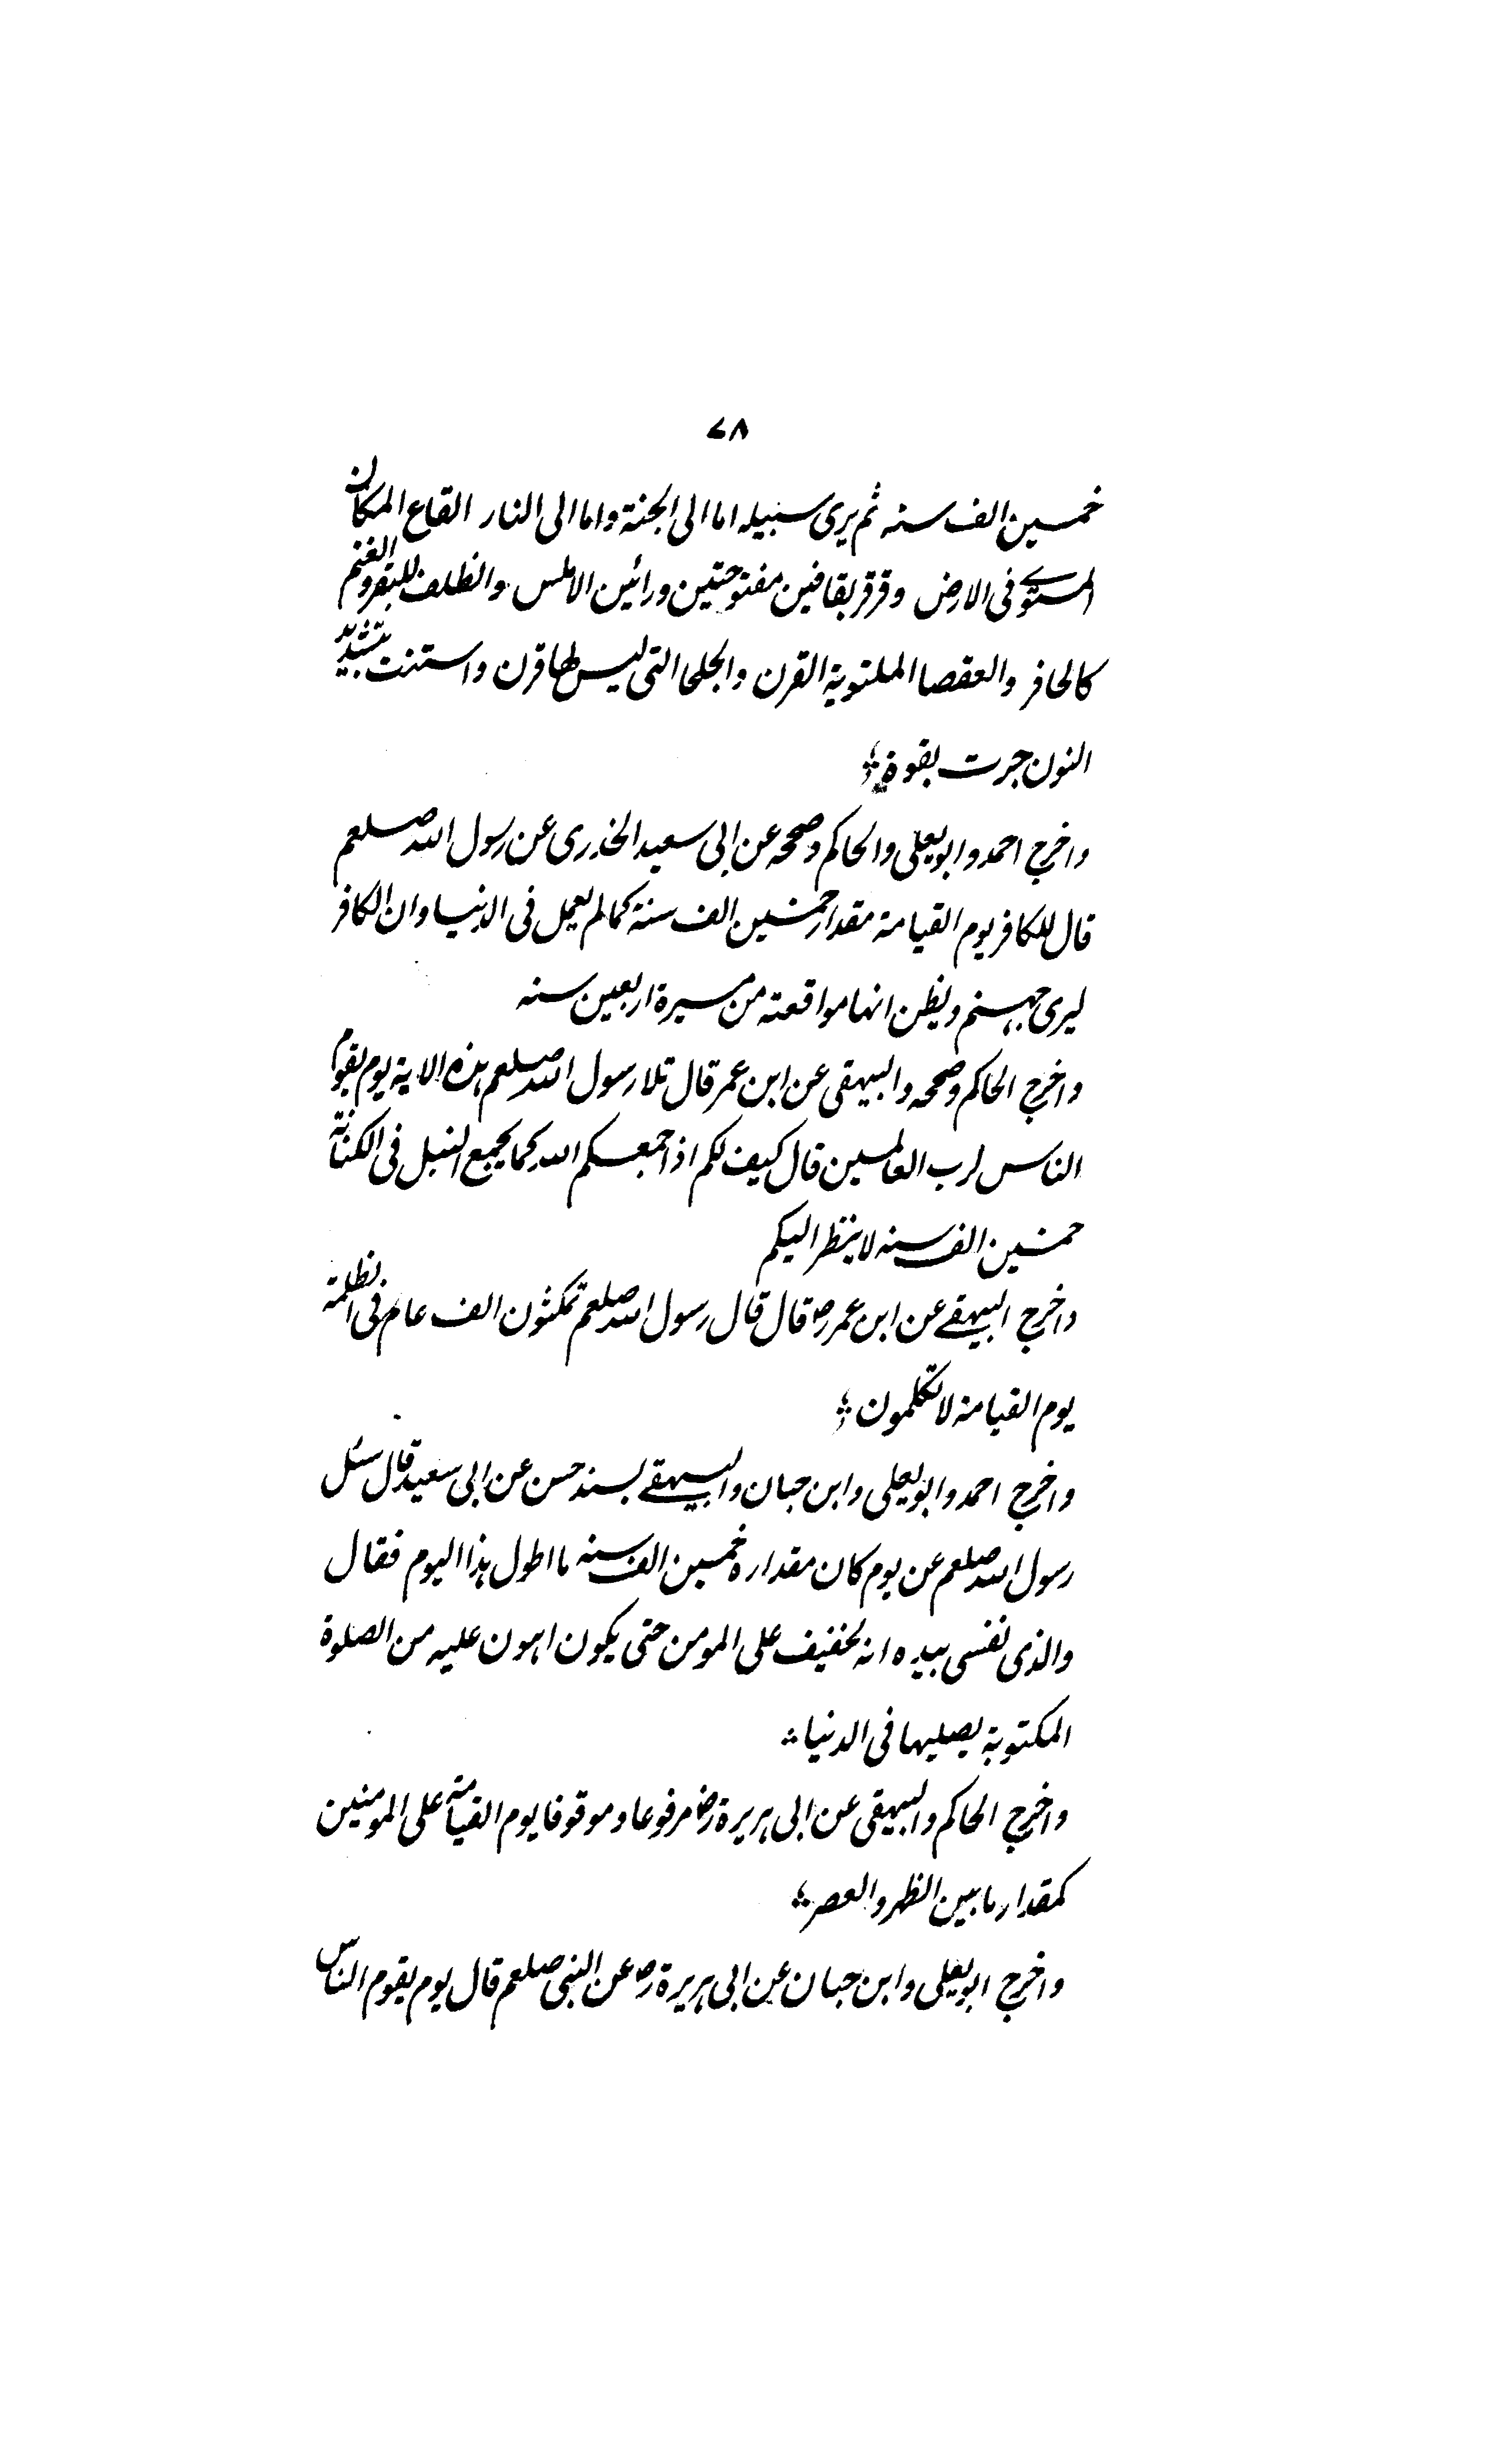 ۷۸
خمسین الف سنه ثم یری سبیله اما الی الجنة واما الی النار القاع المکان
المستوے فی الارض وقرقر بقافین مفتوحتین ورائین الاملس والظلف للبقر والغنم
کالحافر والعقصا الملتویة القرن والجلحا التی لیس لها قرن واستنت بتشدید
النون جرت بقوة
واخرج احمد وابو یعلی والحاکم وصححه عن ابی سعید الخدری عن رسول الله صلعم
قال للکافر یوم القیامة مقدار خمسین الف سنة کما لم یعمل فی الدنیا وان الکافر
لیری جهنم ویظن انها مواقعته من مسیرة اربعین سنه
واخرج الحاکم وصححه والبیهقی عن ابن عمر قال تلا رسول الله صلعم هذه الایة یوم یقوم
الناس لرب العالمین قال کیف لکم اذا جمعکم الله کما یجمع النبل فی الکنانة
خمسین الف سنه لا ینظر الیکم
واخرج البیهقے عن ابن عمر رض قال قال رسول الله صلعم تمکثون الف عام فی الظلمة
یوم القیامة لا تکلمون
واخرج احمد وابو یعلی وابن حبان والبیهقے بسند حسن عن ابی سعید قال سئل
رسول الله صلعم عن یوم کان مقداره خمسین الف سنه ما اطول هذا الیوم فقال
والذی نفسی بیده انه لخفیف علی المومن حتی یکون اهون علیه من الصلوة
المکتوبة یصلیها فی الدنیا
واخرج الحاکم والبیهقی عن ابی هریرة رض مرفوعا وموقوفا یوم القیامة علی المومنین
کمقدار ما بین الظهر والعصر
واخرج ابو یعلی وابن حبان عن ابی هریرة رض عن النبی صلعم قال یوم یقوم الناس